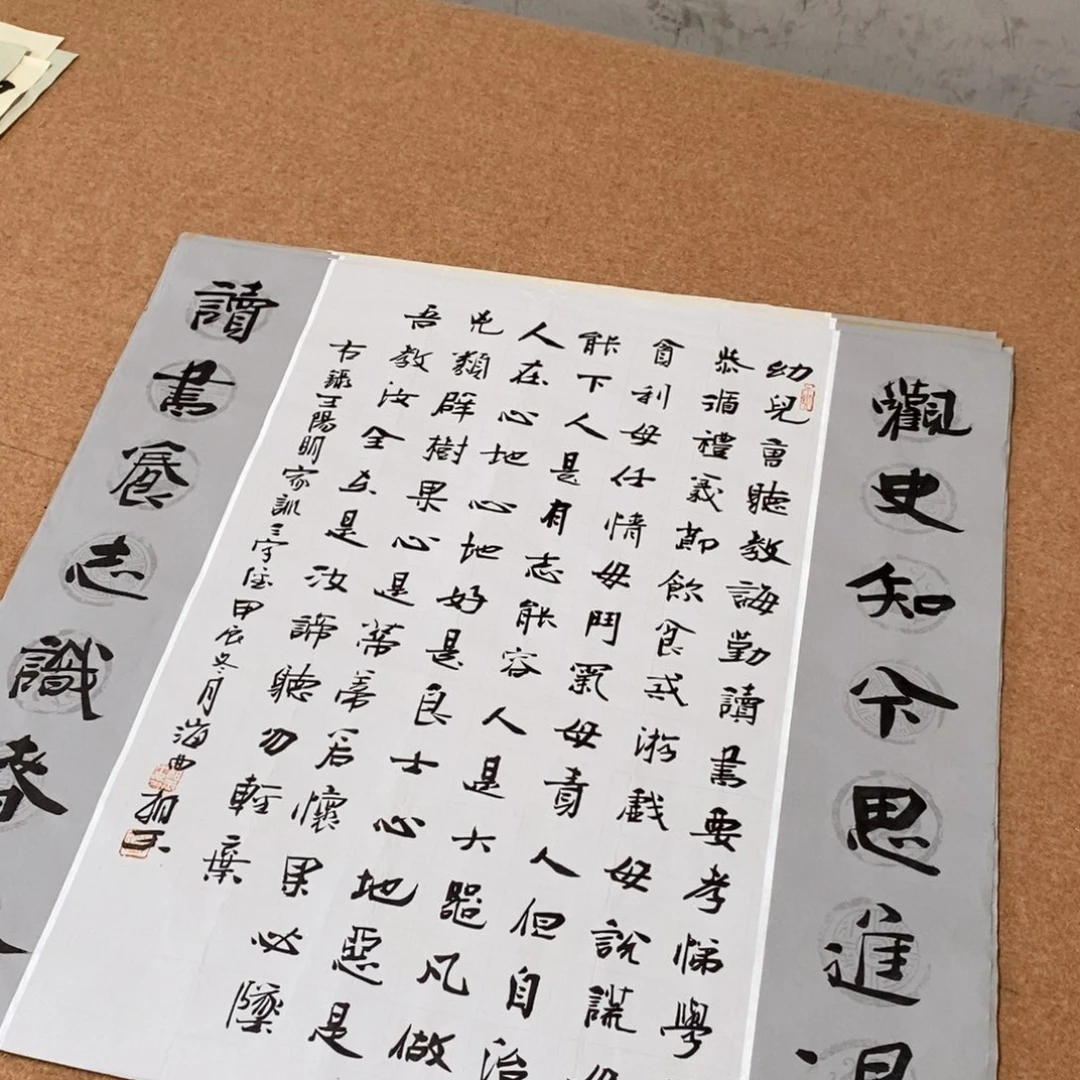 觀史知今思進退
幼兒曹聽教誨勤讀書要孝悌學
恭循禮義節飲食戒游戲毋說謊毋
貪利毋任情毋鬥氣毋責人但自治
能下人是有志能容人是大器凡做
人在心地心地好是良士心地惡是
兇類辟樹果心是蒂蒂若懷果必墜
吾教汝全在是汝諦聽勿輕棄
右錄王陽明家訓三字經甲辰冬月海曲
讀書養志識春